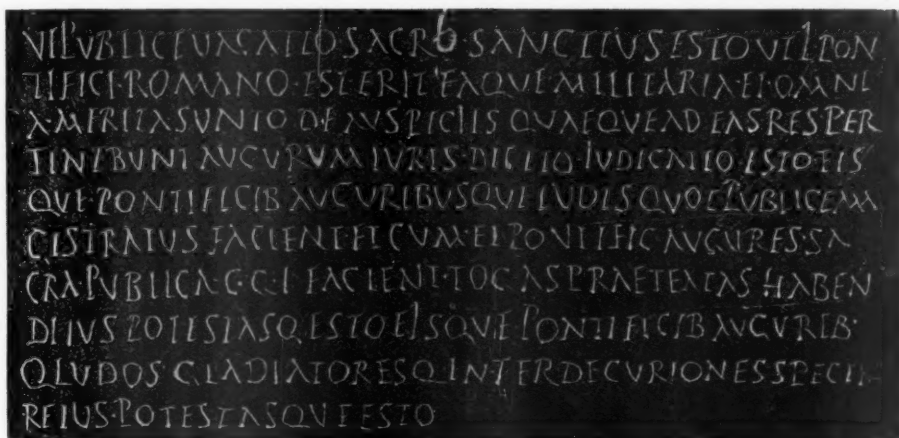 PVBLICE VACATIO SACRO · SANCTIVS ESTO VTI PON
TIFICI · ROMANO · EST ERIT EAQVE MILITARIA · EI · OMNI
A · MERITA SVNTO DE AVSPICIIS QVAEQVE AD EAS RES PER
TINEBVNT AVGVRVM IVRIS DICTIO IVDICATIO ESTO EIS
QVE PONTIFICIB AVGVRIBVSQVE LVDIS QVOT PVBLICE MA
GISTRATVS FACIENT ET CVM EI PONTIFIC AVGVRES SA
CRA PVBLICA C · G · I FACIENT · TOGAS PRAETEXTAS HABEN
DI IVS POTESTASQ ESTO EISQVE PONTIFICIB AVGVRIB ·
Q LVDOS GLADIATORESQ INTER DECVRIONES SPECTA
RE IVS · POTESTASQVE ESTO